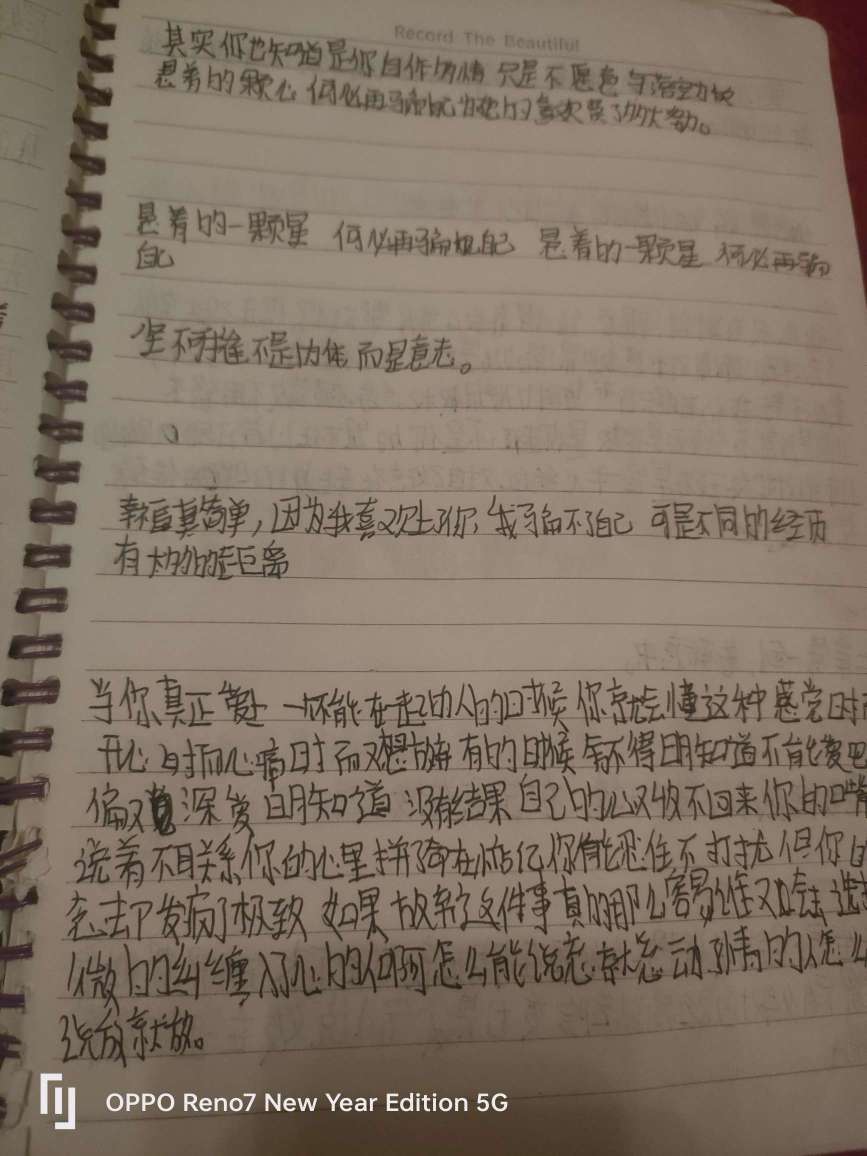 Record The Beautiful
其实你也知道是你自作多情 只是不愿意与落空
悬着的一颗心 何必再骗自己为她的喜欢 费了多大劲。
悬着的一颗星 何必再骗自己 悬着的一颗星 何必再骗
自己
坚不可摧不是肉体 而是意志。
幸福真简单,因为我喜欢上你,我骗不了自己 可是不同的经历
有太多的距离
当你真正爱上一个不能在一起的人的时候 你就会懂这种感觉时而
开心 时而心痛 时而又想放弃 有的时候舍不得 明知道不能爱 吧
偏又 深爱 明知道 没有结果 自己的心又收不回来 你的嘴
说着不联系 你的心里拼命在惦记 你能忍住不打扰 但你的
思念却发疯了极致 如果放弃这件事真的那么容易 谁又会去选择
卑微的纠缠 入了心的人啊 怎么能说忘就忘 动了情的人 怎么
说放就放。
OPPO Reno7 New Year Edition 5G